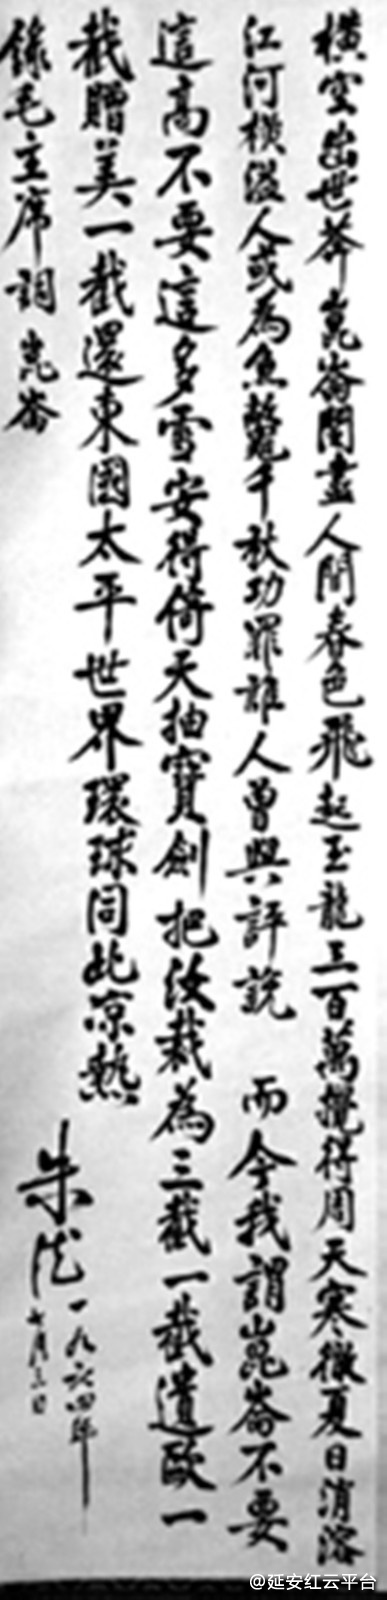 橫空出世莽崑崙閱盡人間春色飛起玉龍三百萬攪得周天寒徹夏日消溶
江河橫溢人或為魚鼈千秋功罪誰人曾與評說 而今我謂崑崙不要
這高不要這多雪安得倚天抽寶劍把汝裁為三截一截遺歐一
截贈美一截還東國太平世界環球同此凉熱
錄毛主席詞崑崙
朱德一九六四年
七月
@延安红云平台